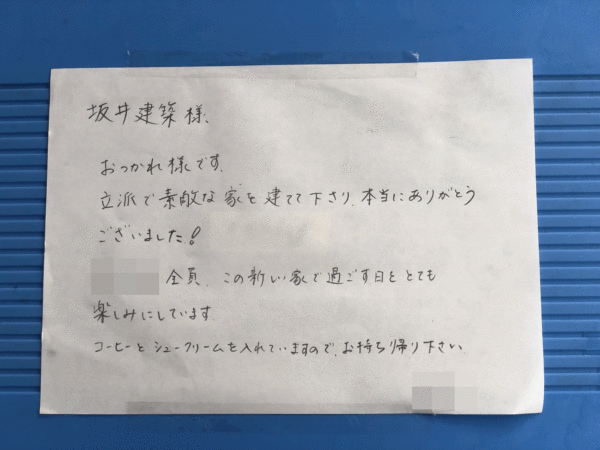 坂井建築様、
おつかれ様です。
立派で素敵な家を建てて下さり、本当にありがとう
ございました!
全員、この新しい家で過ごす日をとても
楽しみにしています。
コーヒーとシュークリームを入れていますので、お持ち帰り下さい。